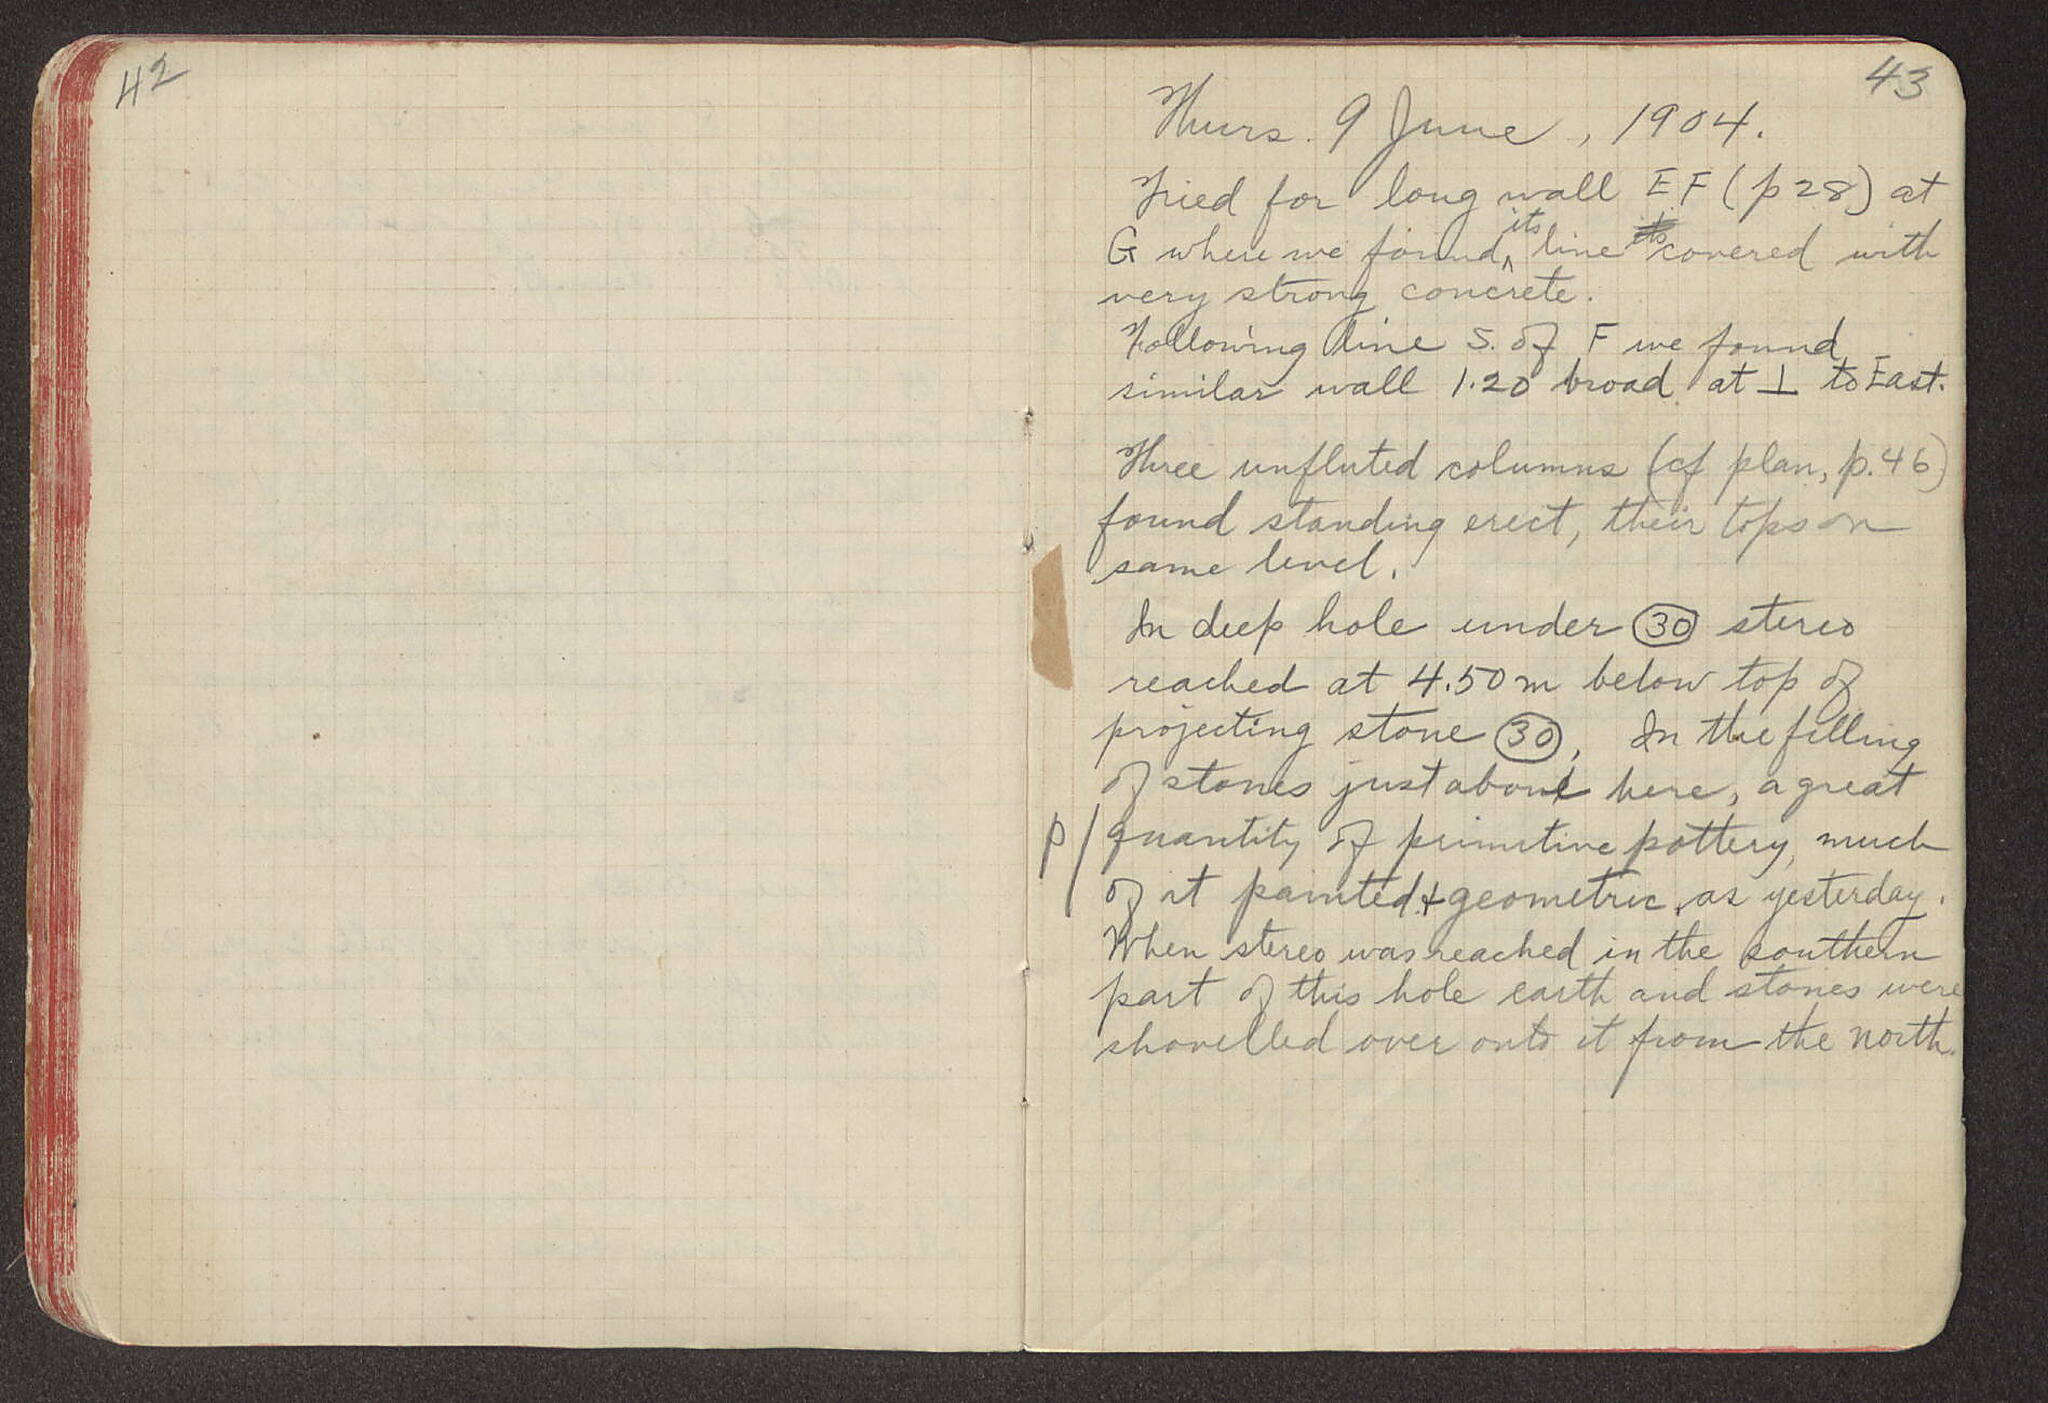 42
43
Thurs. 9 June, 1904.
Tried for long wall EF (p 28) at
G where we found its line its covered with
very strong concrete.
Following line S. of F we found
similar wall 1.20 broad at ⊥ to East.
Three unfluted columns (cf plan, p. 46)
found standing erect, their tops on
same level.
In deep hole under (30) stereo
reached at 4.50 m below top of
projecting stone (30). In the filling
of stones just above here, a great
p/ quantity of primitive pottery, much
of it painted + geometric, as yesterday.
When stereo was reached in the southern
part of this hole earth and stones were
shovelled over onto it from the north.